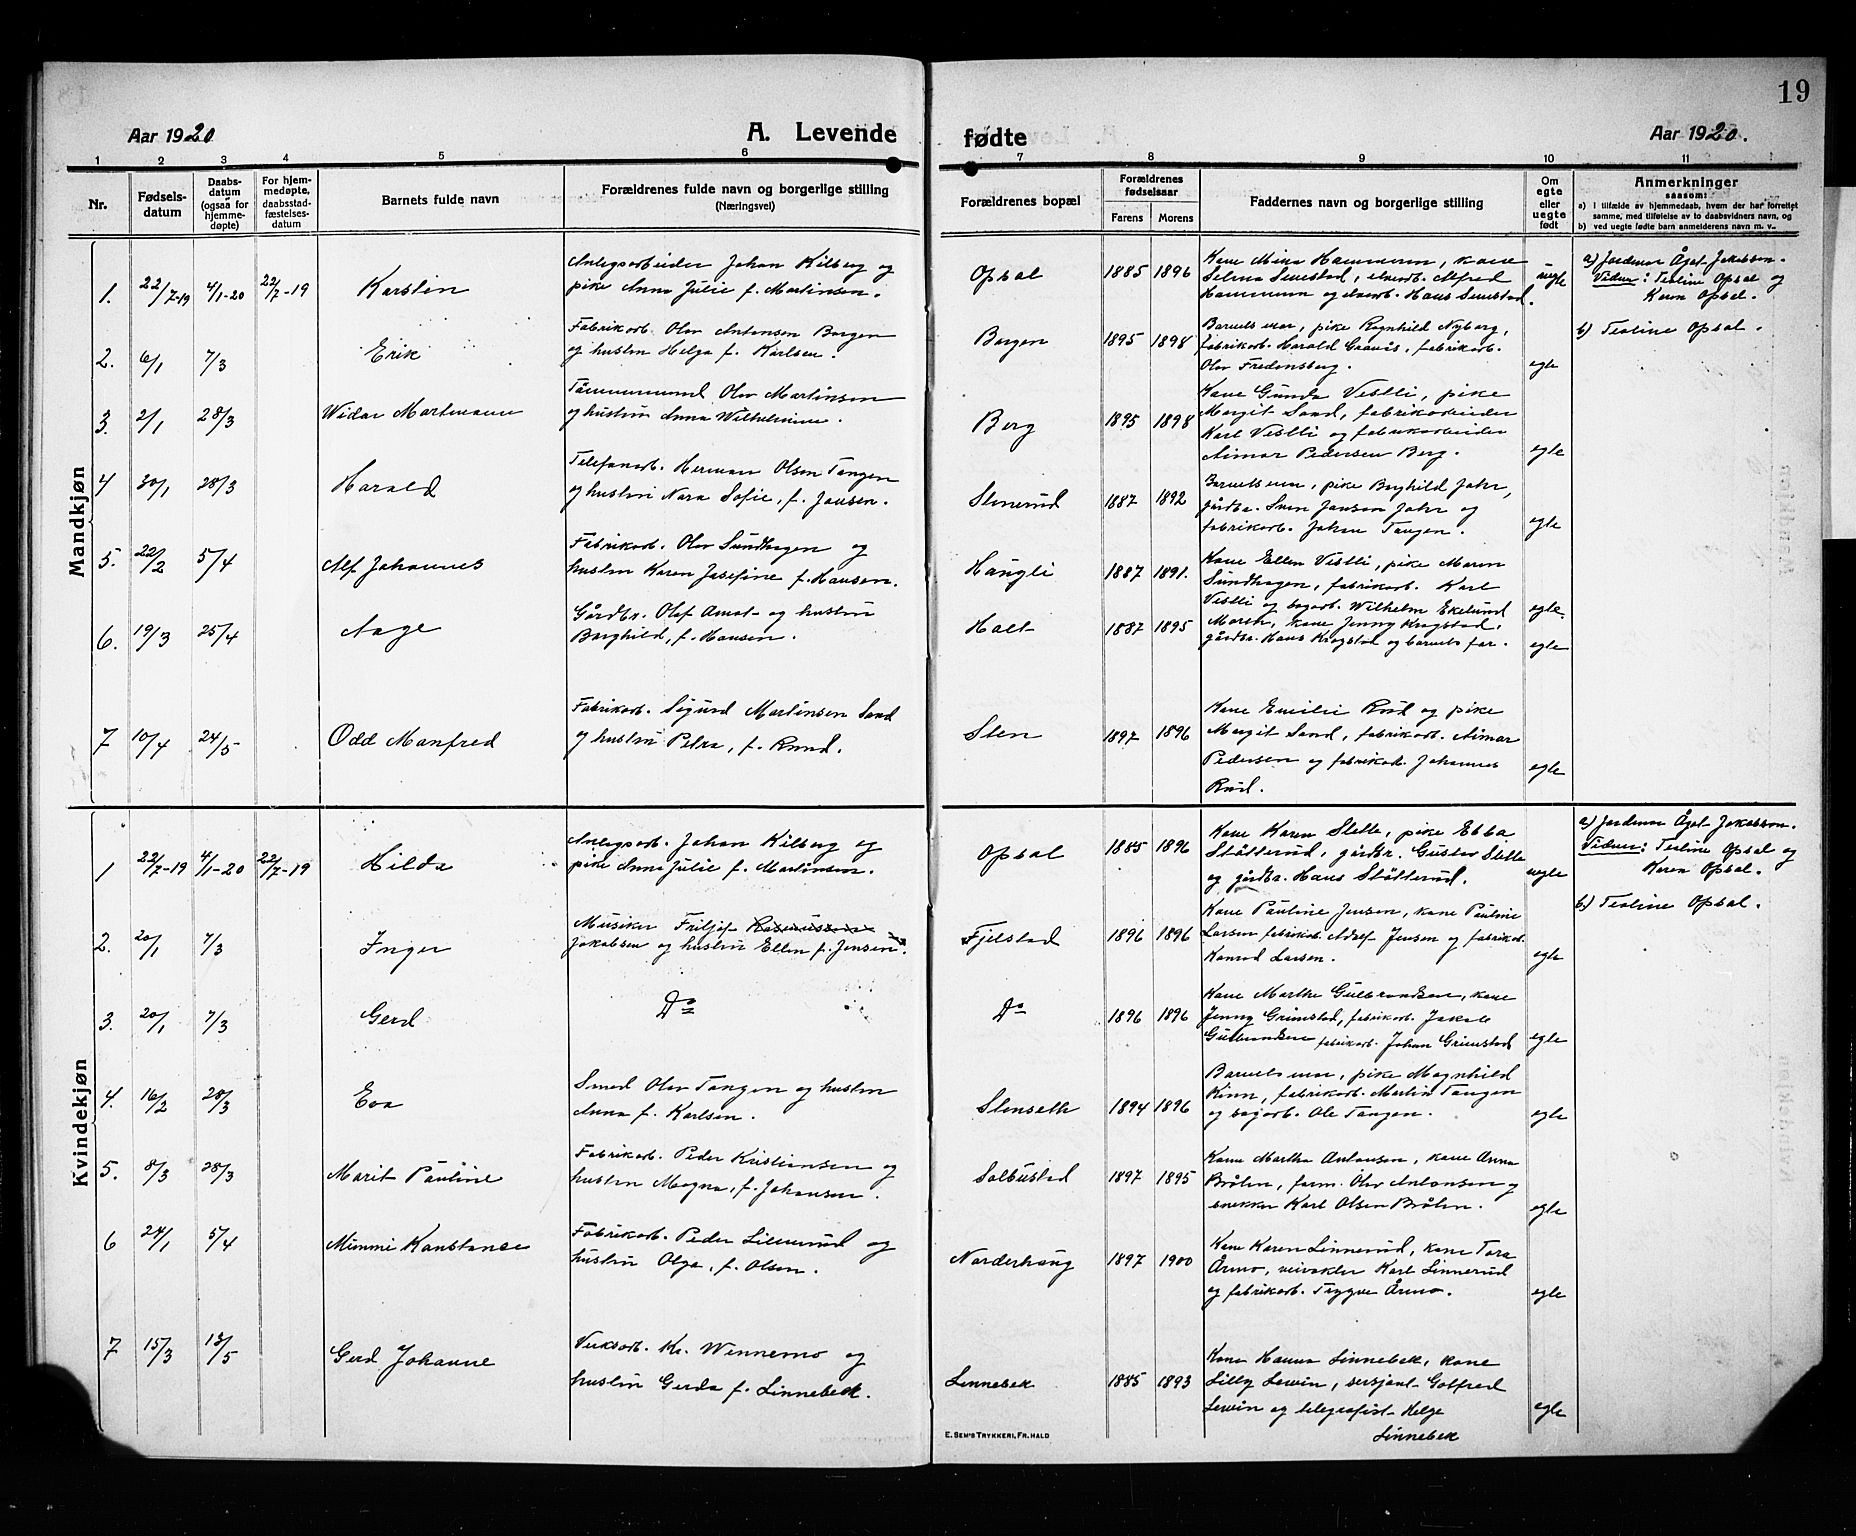 19
Aar 1920
A. Levende fødte
Aar 1920.
1 2 3 4 5 6 7 8 9 10 11
Nr.
Fødsels-
datum
Daabs-
datum
(ogsaa for
hjemme-
døpte)
For hjem-
medøpte,
daabsstad-
fæstelses-
datum
Barnets fulde navn
Forældrenes fulde navn og borgerlige stilling
(Næringsvei)
Forældrenes bopæl
Forældrenes
fødselsaar
Farens Morens
Faddernes navn og borgerlige stilling
Om
egte
eller
uegte
født
Anmerkninger
saasom:
a) I tilfælde av hjemmedaab, hvem der har forrettet
samme, med tilføielse av to daabsvidners navn, og
b) ved uegte fødte barn anmelderens navn m. v.
Mandkjøn
1. 22/7-19 4/1-20 22/7-19 Karstein
Anlegsarbeider Johan Kilberg og
pike Anna Julie f. Martinsen.
Opsal 1885 1896
Kone Mina Hammeren, kone
Selma Senstad, elverb. Alfred
Hammeren og elverb. Hans Senstad.
uegte
a) Jordmor Åget Jakobson.
Vidner: Teoline Opsal og
Karen Opsal.
b) Teoline Opsal.
2. 6/1 7/3 Erik
Fabrikarb. Olav Antonsen Borgen
og hustru Helga f. Karlsen.
Borgen 1895 1898
Barnets mor, pike Ragnhild Nyborg,
fabrikarb. Harald Graaås, fabrikarb.
Olav Fredensberg.
egte
3. 2/1 28/3 Widar Martmann
Tømmermand Olav Martinsen
og hustru Anna Wilhelmine.
Berg 1895 1898
Kone Gunda Vestli, pike
Margit Sand, fabrikarbeider
Karl Vestli og fabrikarbeider
Aimar Pedersen Berg.
egte
4 30/1 28/3 Harald
Telefonarb. Herman Olsen Tangen
og hustru Nora Sofie, f. Jansen.
Stenerud 1887 1892
Barnets mor, pike Borghild Jahr,
gårdbr. Sven Jansen Jahr og
fabrikarb. Johan Tangen.
egte
5. 22/2 5/4 Alf Johannes
Fabrikarb. Olav Sundhagen og
hustru Karen Josefine f. Hansen.
Haugli 1887 1891.
Kone Ellen Vestli, pike Maren
Sundhagen, fabrikarb. Karl
Vestli og bogarb. Wilhelm Ekelund
egte.
6. 19/3 25/4 Aage
Gårdbr. Olaf Amot og hustru
Borghild, f. Hansen.
Holt 1887 1895
Moren, kone Jenny Krogstad,
gårdbr. Hans Krogstad og barnets far.
egte
7 10/4 24/5 Odd Manfred
Fabrikarb. Sigurd Martinsen Sand
og hustru Petra, f. Ruud.
Sten 1897 1896
Kone Emilie Ruud og pike
Margit Sand, fabrikarb. Aimar
Pedersen og fabrikarb. Johannes
Ruud.
egte
Kvindekjøn
1 22/7-19 4/1-20 22/7-19 Hilda
Anlegsarb. Johan Kilberg og
pike Anna Julie f. Martinsen.
Opsal 1885 1896
Kone Karen Slette, pike Ebba
Støtterud, gårdbr. Gustav Slette
og gårdbr. Hans Støtterud.
uegte
a) Jordmor Åget Jakobson.
Vidner: Teoline Opsal og
Karen Opsal.
b) Teoline Opsal.
2. 20/1 7/3 Inger
Musiker Fritjof Rasmussen
Jakobsen og hustru Ellen f. Jensen.
Fjelstad 1896 1896
Kone Pauline Jensen, kone Pauline
Larsen fabrikarb. Adolf Jensen og fabrikarb.
Konrad Larsen.
egte
3. 20/1 7/3 Gerd
Do
Do 1896 1896
Kone Marthe Gulbrandsen, kone
Jenny Grimstad, fabrikarb. Jakob
Gulbrandsen fabrikarb. Johan Grimstad
egte
4. 16/2 28/3 Eva
Smed Olav Tangen og hustru
Anna f. Karlsen.
Stenseth 1894 1896
Barnets mor, pike Magnhild
Kinn, fabrikarb. Martin Tangen
og bogarb. Ole Tangen.
egte
5. 8/3 28/3 Marit Pauline
Fabrikarb. Peder Kristiansen og
hustru Magna, f. Johansen.
Solbustad 1897 1895
Kone Martha Antonsen, kone Anna
Bråten, form. Olav Antonsen og
snekker Karl Olsen Bråten.
egte
6 24/1 5/4 Mimmi Konstance
Fabrikarb. Peder Linnerud og
hustru Olga, f. Olsen.
Norderhaug 1897 1900
Kone Karen Linnerud, kone Tora
Årmo, veivokter Karl Linnerud
og fabrikarb. Trygve Årmo.
egte
7 15/3 13/5 Gerd Johanne
Verksarb. Kr. Wennemo og
hustru Gerda f. Linnebek.
Linnebek 1885 1893
Kone Hanna Linnebek, kone
Lilly Lewin, sersjant Gotfred
Lewin og telegrafist Helge
Linnebek
egte
E. SEM'S TRYKKERI, FR. HALD